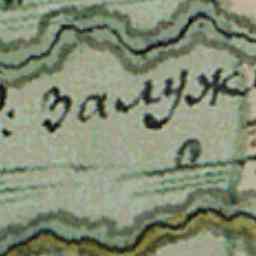 : залуж